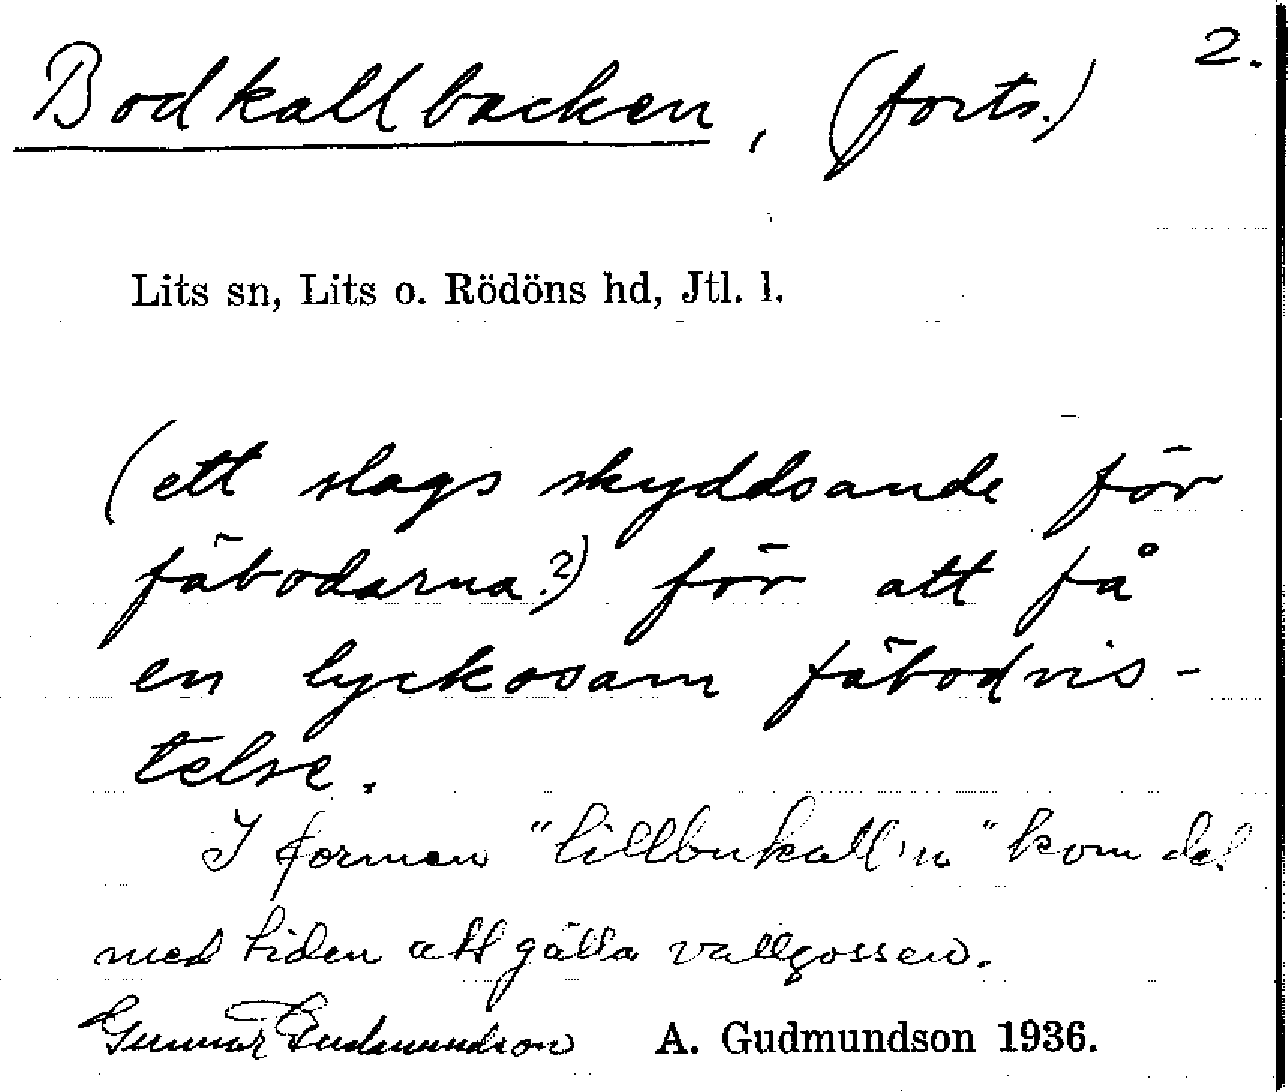 2.
Bodkallbacken, (forts.)
Lits sn, Lits o. Rödöns hd, Jtl. l.
(ett slags skyddsande för
fäbodarna?) för att få
en lyckosam fäbodvis-
telse.
I formen "lillbukall'n" kom det
med tiden att gälla vallgossen.
Gunnar Gudmundson A. Gudmundson 1936.